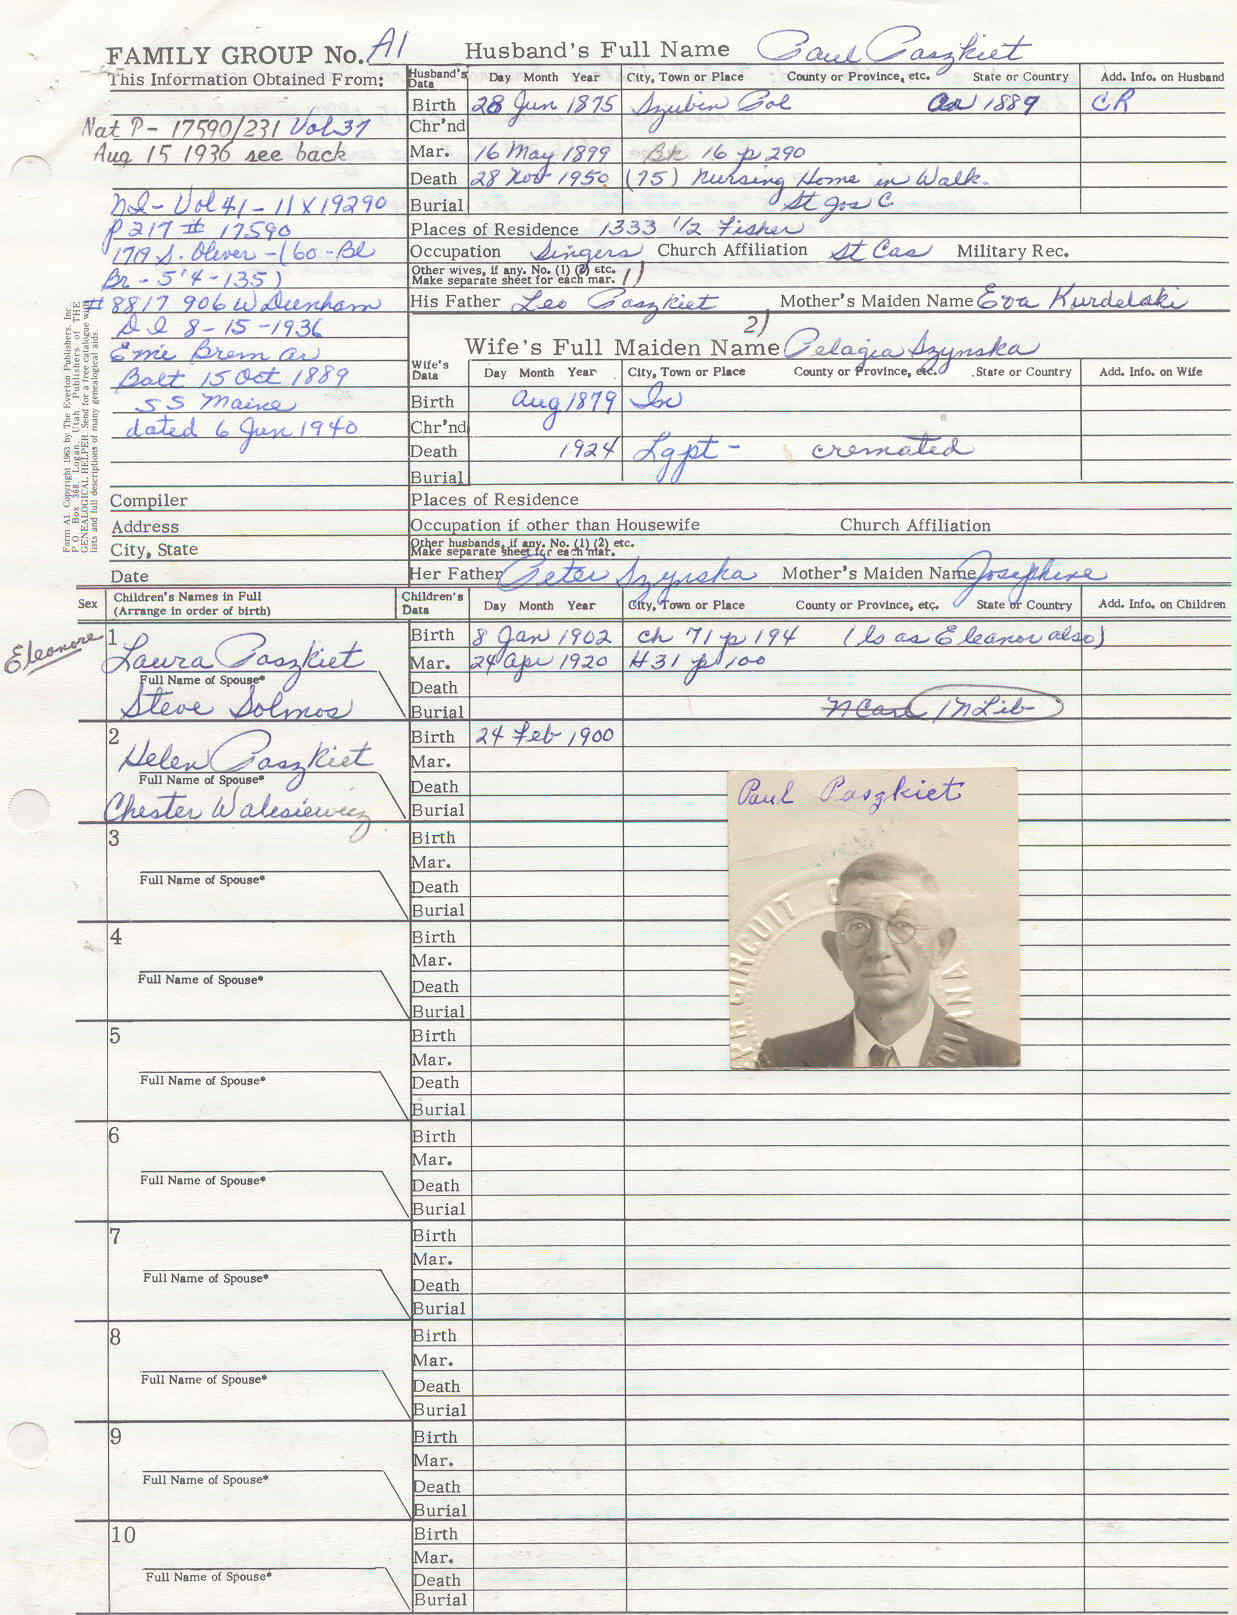 FAMILY GROUP No. A1 Husband's Full Name Paul Paszkiet
This Information Obtained From:
Husband's Data Day Month Year City, Town or Place County or Province, etc. State or Country Add. Info. on Husband
Birth 28 Jun 1875 Szubin Pol 1889 CR
Nat P - 17590/231 Vol 37
Chr'nd
Aug 15 1936 see back
Mar. 16 May 1899 Bk 16 p 290
Death 28 Nov 1950 (75) Nursing Home in Walk.
NI - Vol 41 - 11 X 19290
Burial St Jos C
P 217 # 17590
Places of Residence 1333 1/2 Fisher
1719 S. Oliver - (60 - Bl
Occupation Singers Church Affiliation St Cas Military Rec.
Br - 5'4 - 135)
Other wives, if any. No. (1) (2) etc. 1)
Make separate sheet for each mar.
# 8817 906 W Dunham
His Father Leo Paszkiet Mother's Maiden Name Eva Kurdelski
D I 8-15-1936
2)
Wife's Full Maiden Name Pelagia Szynska
Emie Brem
Wife's Data Day Month Year City, Town or Place County or Province, etc. State or Country Add. Info. on Wife
Balt 15 Oct 1889
SS Maine
Birth Aug 1879 In
dated 6 Jun 1940
Chr'nd
Death 1924 Lgpt - cremated
Burial
Compiler
Places of Residence
Address
Occupation if other than Housewife Church Affiliation
City, State
Other husbands, if any. No. (1) (2) etc.
Make separate sheet for each mar.
Date
Her Father Peter Szynska Mother's Maiden Name Josephine
Form A1. Copyright 1963 by The Everton Publishers, Inc.
P.O. Box 368, Logan, Utah. Publishers of THE
GENEALOGICAL HELPER. Send for a free catalogue with
lists and full descriptions of many genealogical aids.
Sex Children's Names in Full
(Arrange in order of birth)
Children's Data Day Month Year City, Town or Place County or Province, etc. State or Country Add. Info. on Children
Eleonore
1 Laura Paszkiet
Full Name of Spouse*
Steve Solmos
Birth 8 Jan 1902 ch 71 p 194 (ls as Eleanor also)
Mar. 24 Apr 1920 H 31 p 100
Death
Burial N Carl / N Lib
2 Helen Paszkiet
Full Name of Spouse*
Chester Walesiewicz
Birth 24 Feb 1900
Mar.
Death
Burial
Paul Paszkiet
CIRCUIT
3
Full Name of Spouse*
Birth
Mar.
Death
Burial
4
Full Name of Spouse*
Birth
Mar.
Death
Burial
5
Full Name of Spouse*
Birth
Mar.
Death
Burial
6
Full Name of Spouse*
Birth
Mar.
Death
Burial
7
Full Name of Spouse*
Birth
Mar.
Death
Burial
8
Full Name of Spouse*
Birth
Mar.
Death
Burial
9
Full Name of Spouse*
Birth
Mar.
Death
Burial
10
Full Name of Spouse*
Birth
Mar.
Death
Burial